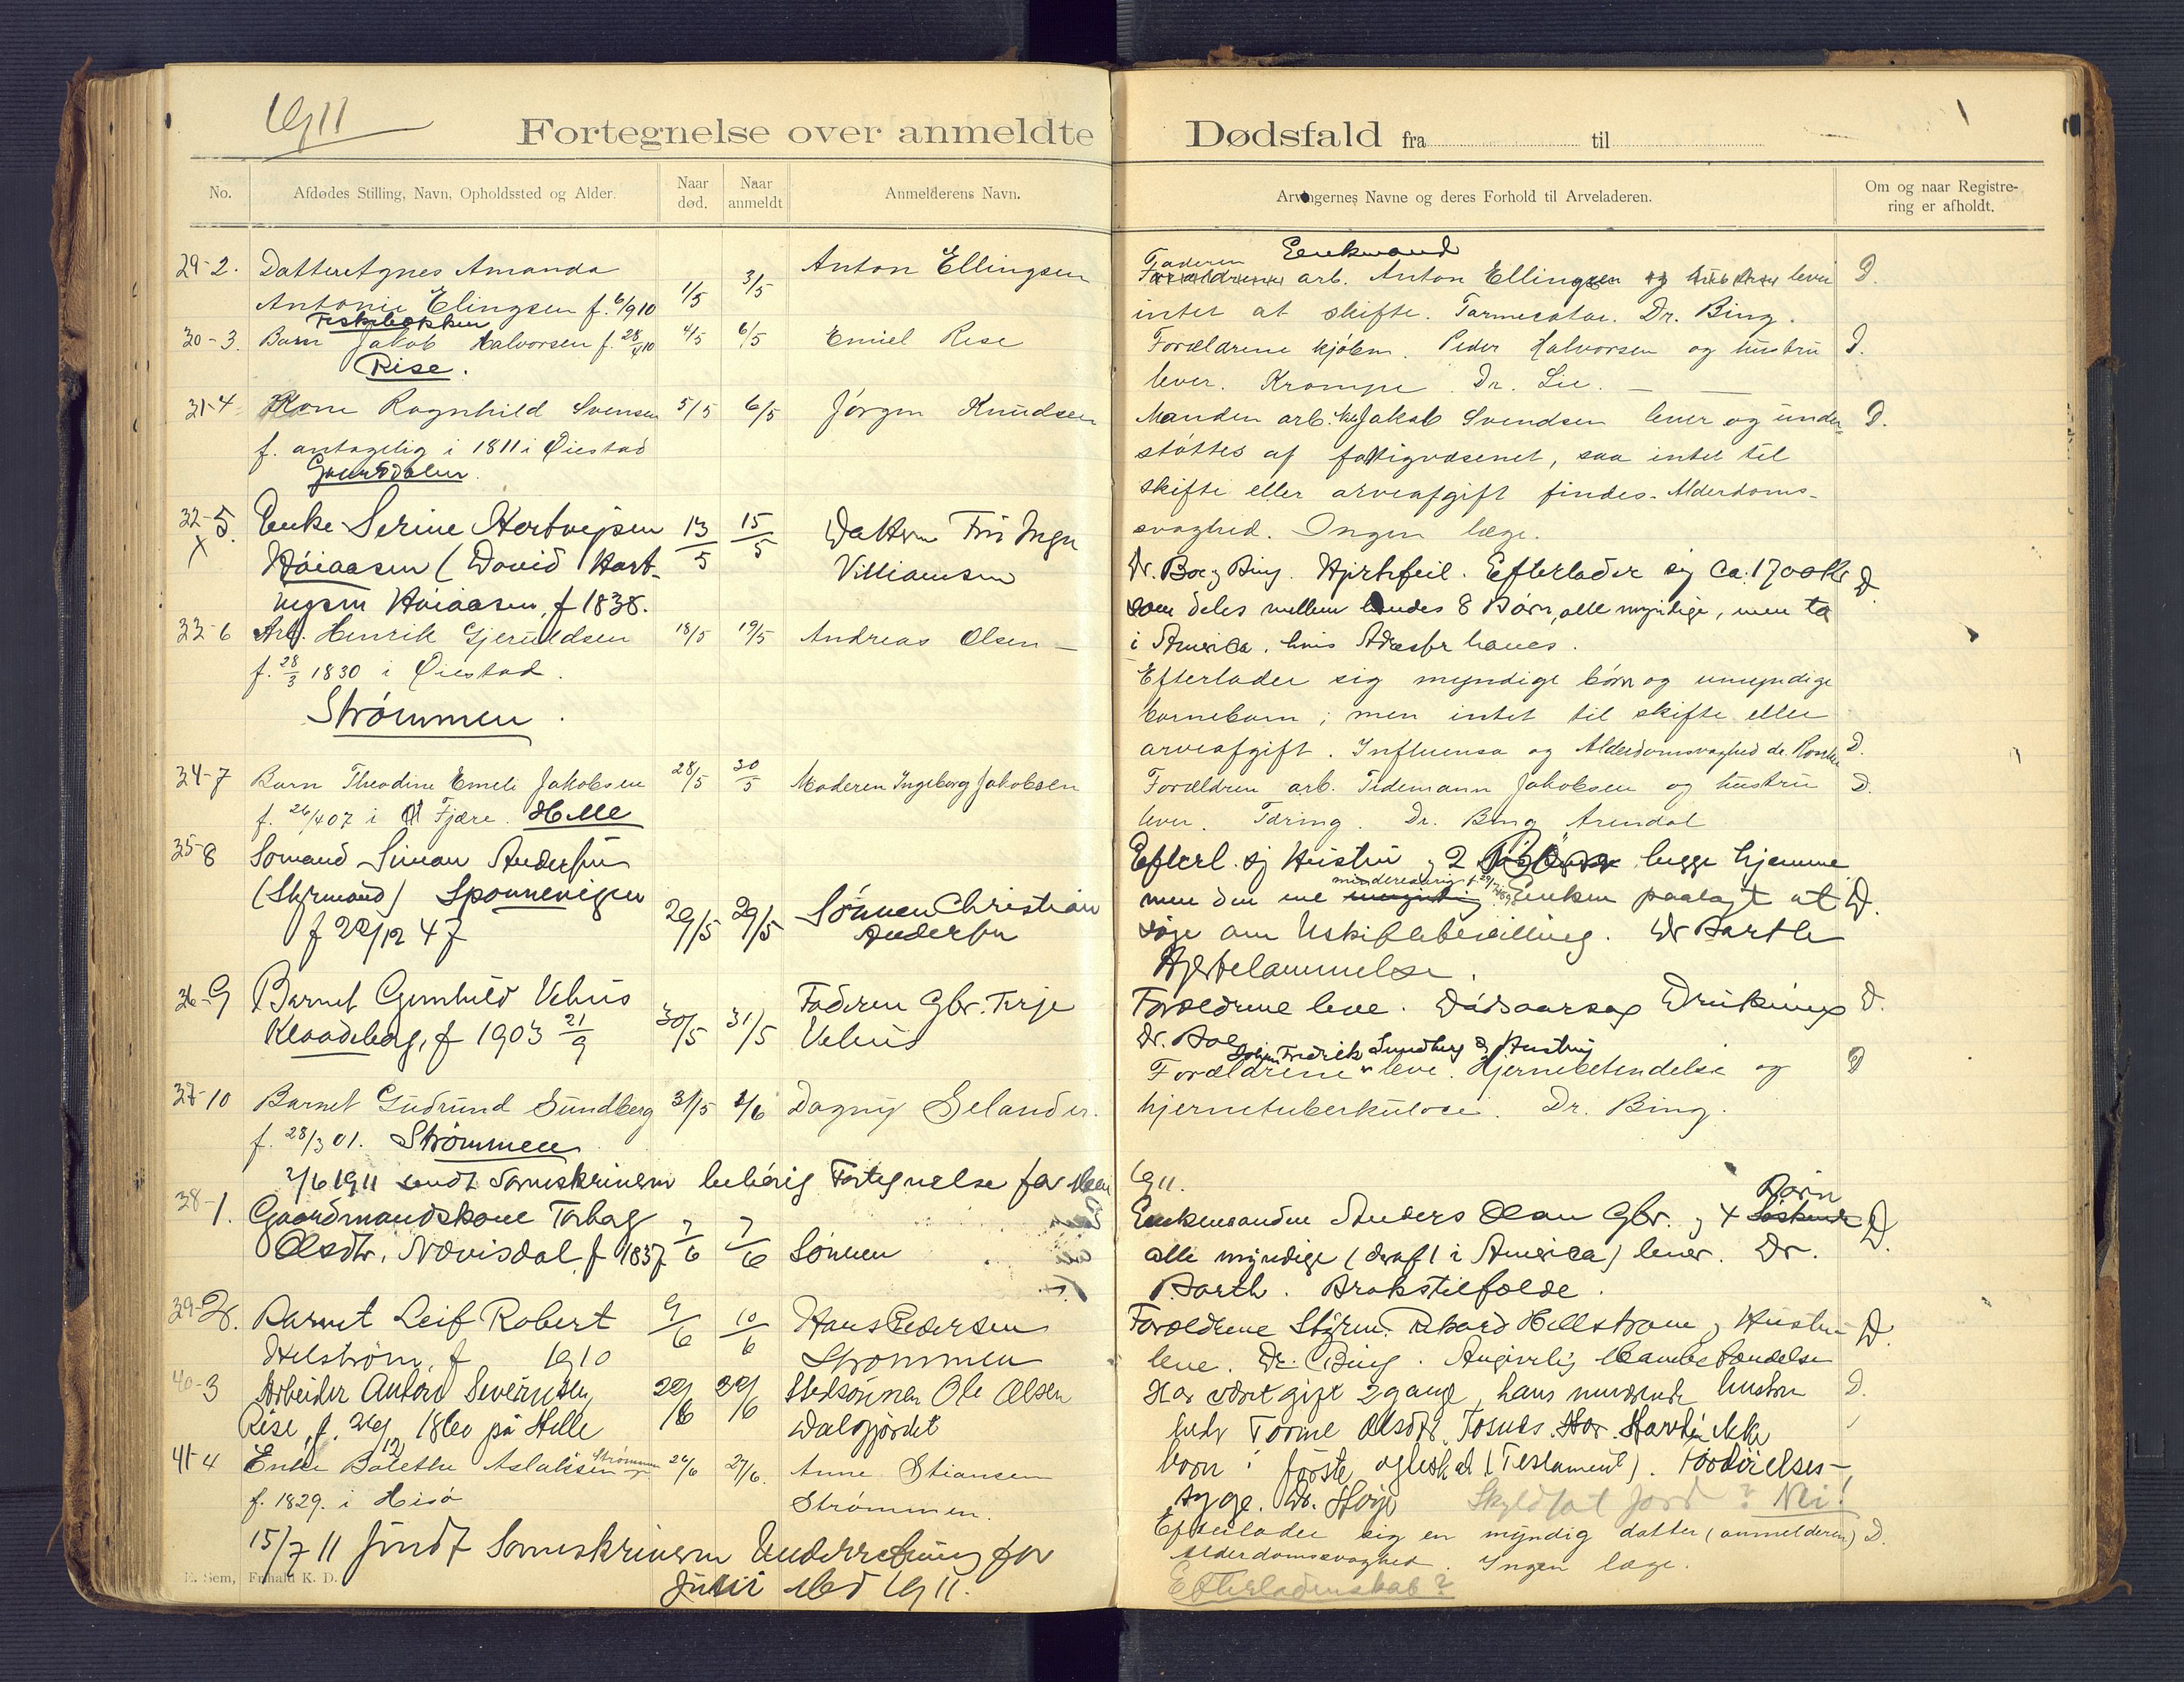 1911
Fortegnelse over anmeldte Dødsfald fra til
No.
Afdødes Stilling, Navn, Opholdssted og Alder.
Naar død.
Naar anmeldt
Anmelderens Navn.
Arvingernes Navne og deres Forhold til Arveladeren.
Om og naar Registrering er afholdt.
29-2. Datter Agnes Amanda
Antonie Elingsen f. 6/9 10
Fiskebækken
1/5 3/5 Anton Ellingsen
Faderen Enkemand
Forældrene arb. Anton Ellingsen og hustru lever D.
intet at skifte. Tarmecatar. Dr. Bing.
30-3. Barn Jakob Halvorsen f. 28/4 10
Rise.
4/5 6/5 Emiel Rise
Forældrene kjøbm. Peder Halvorsen og hustru D.
lever. Krampe Dr. Lie.
31-4 Kone Ragnhild Svensen 5/5 6/5 Jørgen Knudsen
f. antagelig i 1811 i Øiestad
Manden arb. Jakob Svendsen lever og under- D.
støttes af fattigvæsenet, saa intet til
skifte eller arveafgift findes. Alderdoms-
svaghed. Ingen læge.
32-5. Enke Serine Hartvigsen 13/5 15/5 Datteren Fru Inga
x Høiaasen (David Hart- Villiamsen
vigsen Høiaasen, f 1838.
Dr. Boe og Bing. Hjertefeil. Efterlader sig ca. 1700 Kr D
som deles mellem hendes 8 Børn, alle myndige, men to
i America, hvis Adresser haves.
33-6 Arb. Henrik Gjeruldsen 18/5 19/5 Andreas Olsen
f. 28/3 1830 i Øiestad.
Strømmen
Efterlader sig myndige børn og umyndige
barnebarn; men intet til skifte eller
arveafgift. Influensa og Alderdomsvaghed dr. D.
34-7 Barn Theodine Emeli Jakobsen 28/5 30/5 Moderen Ingeborg Jakobsen
f. 26/4 07 i Fjære. Helle
Forældren arb. Tidemann Jakobsen og hustru D.
lever. Tæring. Dr. Bing Arendal
35-8 Sømand Simon Andersen
(Styrmand) Spornevigen
f 22/12 47
29/5 29/5 Sønnen Christian
Andersen
Efterl. sj Hustru og 2 begge hjemme
mindreaarig
men den ene umyndig Enken paalagt at D.
søge om Uskiftebevilling. Dr Barth
Hjertelammelse.
36-9 Barnet Gunhild Vehus
Klaadeborg, f 1903 21/9
30/5 31/5 Faderen Gbr. Terje
Vehus
Forældrene leve. Dødsaarsag Drukning D.
Dr. Boe
37-10 Barnet Gudrund Sundberg 31/5 2/6 Dagny Selander.
f. 28/3 01. Strømmen
Johan Fredrik Sundberg og Hustru
Forældrene leve. Hjernebetendelse og D
hjernetuberkulose. Dr. Bing.
2/6 1911 sendt Sorenskriveren behørig Fortegnelse for Mai 1911.
38-1. Gaardmandskone Torbor
Olsdtr. Nævisdal, f 1837 7/6 7/6 Sønnen
Børn
Enkemanden Anders Olsen Gbr. og 4 Søskende D.
alle myndige (deraf 1 i America) lever. Dr.
Barth. Brokstilfælde.
39-2. Barnet Leif Robert 9/6 10/6 Hans Pedersen
Helstrøm, f 1910 Strømmen
Forældrene Styrm. Rikard Hellstrøm og Hustru D.
leve. Dr. Bing. Angivelig
40-3 Arbeider Anton Severinsen, 22/6 22/6 Stedsønnen Ole Olsen
Rise, f. 26/12 1860 på Helle Dalsfjordet
Har været gift 2 gange, hans nuværende hustru D.
heder Tomine Olsdtr. Har ikke
born i første ægteskab (Testament). Fordøielses-
syge. Dr. Høye Skyldsat jord? Nei!
41-4 Enke Bolethe Aslaksen Strømmen 26/6 27/6. Anne Stiansen
f. 1829. i Hisø Strømmen.
Efterlader sig en myndig datter (anmelderen) D.
Alderdomssvaghed. Ingen læge.
Efterladenskab?
15/7 11 sendt Sorenskriveren Underretning for
Juni Md 1911.
E. Sem, Fr.hald K. D.